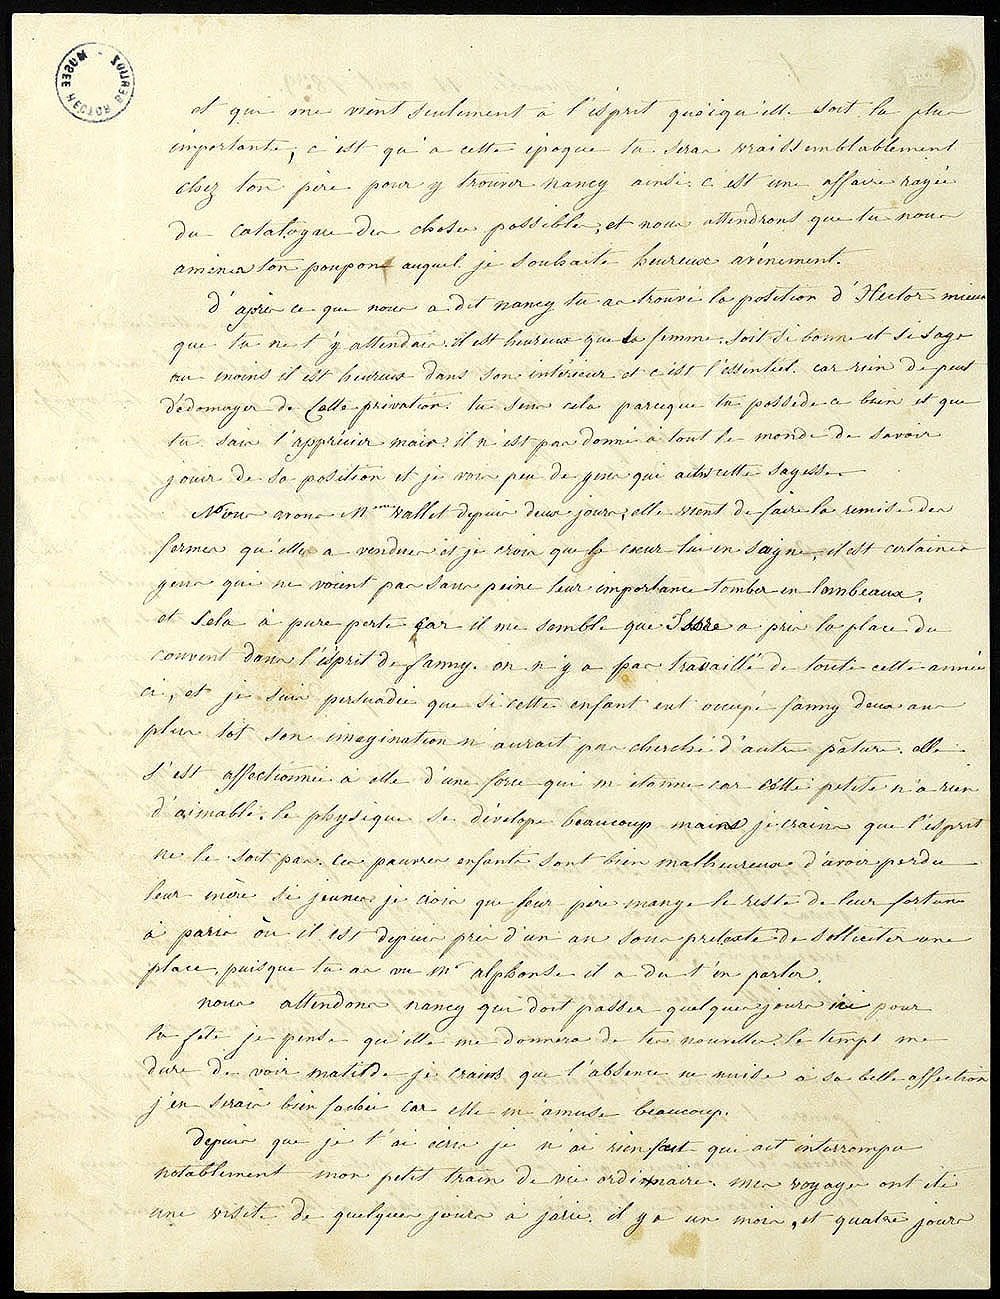 MUSEE HECTOR BERLIOZ
et qui me vient seulement à l'esprit quoiqu'elle soit la plus
importante, c'est qu'a cette epoque tu seras vraissemblablement
chez ton père pour y trouver nancy ainsi c'est une affaire rayée
du catalogue des choses possibles, et nous attendrons que tu nous
amenes ton poupon auquel je souhaite heureux avénement.
D'après ce que nous a dit nancy tu as trouvé la position d'Hector mieux
que tu ne t'y attendais. il est heureux que sa femme soit si bonne et si sage
au moins il est heureux dans son intérieur et c'est l'essentiel. car rien de peut
dédomager de cette privation. tu sens cela parceque tu possede ce bien et que
tu sais l'apprécier mais il n'est pas donné à tout le monde de savoir
jouir de sa position et je vois peu de gens qui aient cette sagesse.
Nous avons Mme Vallet depuis deux jours, elle vient de faire la remise des
fermes qu'elle a vendues et je crois que le coeur lui en saigne, il est certaines
gens qui ne voient pas sans peine leur importance tomber en lambeaux.
et cela à pure perte car il me semble que a pris la place du
couvent dans l'esprit de fanny. on n'y a pas travaillé de toute cette année
ci, et je suis persuadée que si cette enfant eut occupé fanny deux ans
plus tôt son imagination n'aurait pas cherché d'autre pâture. elle
s'est affectionnée à elle d'une force qui m'étonne car cette petite n'a rien
d'aimable. le physique se dévelope beaucoup mais je crains que l'esprit
ne le soit pas. ces pauvres enfants sont bien malheureux d'avoir perdu
leur mère si jeunes je crois que leur père mange le reste de leur fortune
à paris où il est depuis près d'un an sous pretexte de solliciter une
place. puisque tu as vu mr alphonse il a du t'en parler.
nous attendons nancy qui doit passer quelques jours ici pour
la fête je pense qu'elle me donnera de tes nouvelles. le temps me
dure de voir matilde je crains que l'absence ne nuise à sa belle affection
j'en serais bien fachée car elle m'amuse beaucoup.
depuis que je t'ai écris je n'ai rien fait qui ait interrompu
notablement mon petit train de vie ordinnaire. mes voyages ont été
une visite de quelques jours à jarie. il y a un mois, et quatre jours